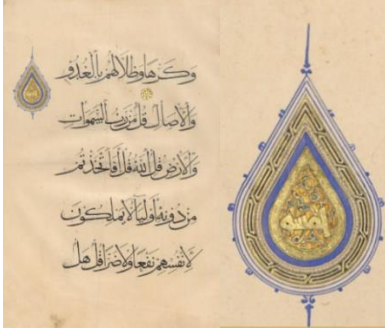 وَكَرْهًا وَظِلَالُهُمْ بِالْغُدُوِّ
وَالْآصَالِ قُلْ مَنْ رَبُّ السَّمَوَاتِ
وَالْأَرْضِ قُلِ اللَّهُ قُلْ أَفَاتَّخَذْتُمْ
مِنْ دُونِهِ أَوْلِيَاءَ لَا يَمْلِكُونَ
لِأَنْفُسِهِمْ نَفْعًا وَلَا ضَرًّا قُلْ هَلْ